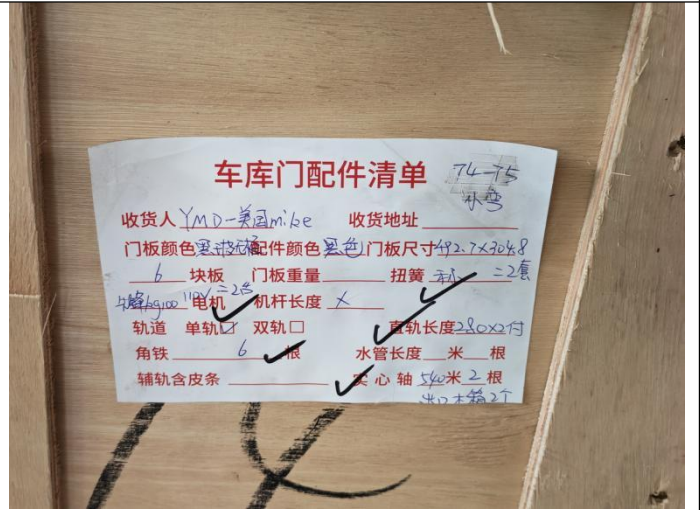 车库门配件清单 74-75
小弯
收货人 YMD-美国mike 收货地址
门板颜色 黑 配件颜色 黑色 门板尺寸 492.7X304.8
6 块板 门板重量 扭簧 =2套
kg100 110V=2台 电机 机杆长度 X
轨道 单轨☑ 双轨□ 直轨长度 280X2付
角铁 6 根 水管长度 米 根
辅轨含皮条 实心轴 540米 2根
木箱2个